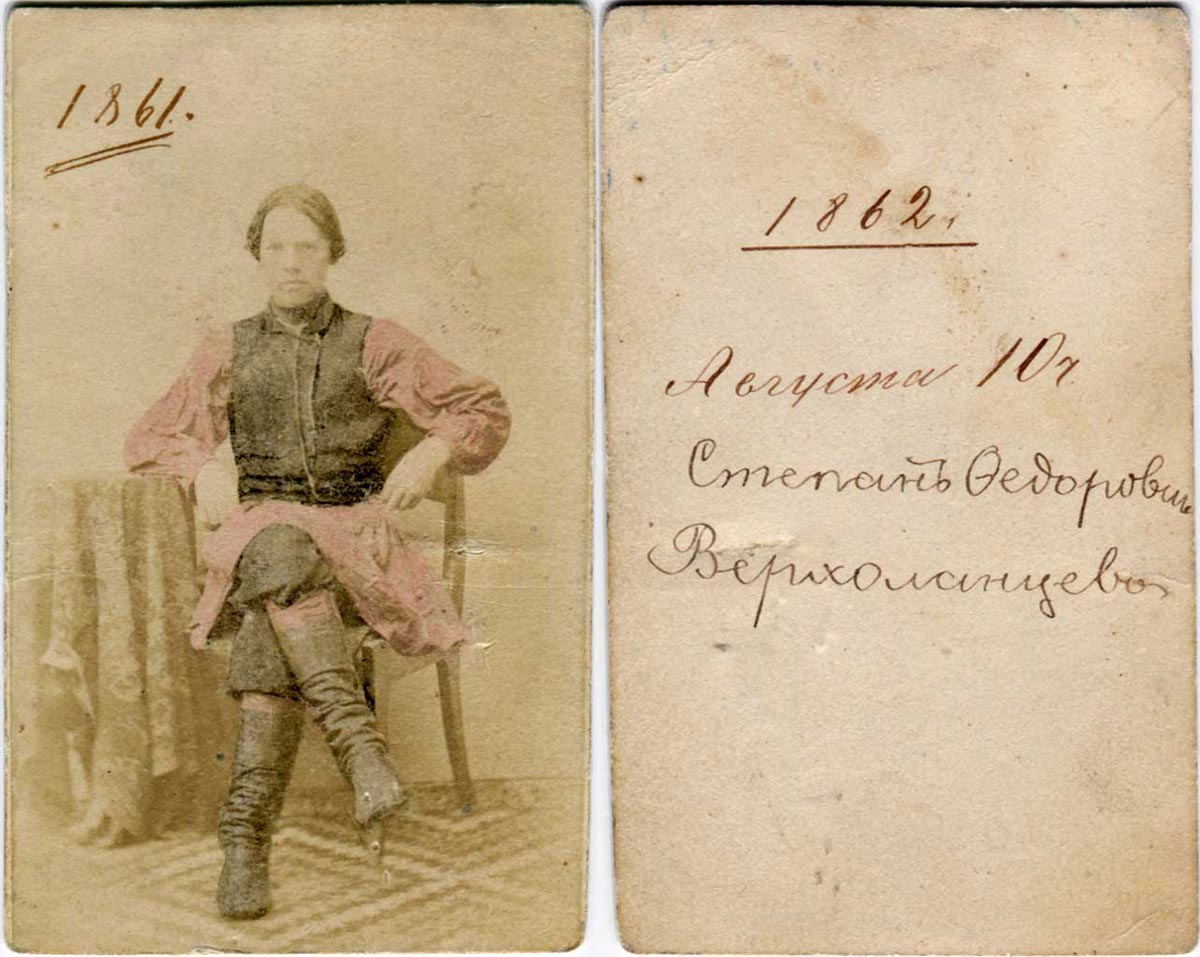 1861.
1862.
Августа 10 ч
Степанъ Ѳедорович
Верхоланцевъ